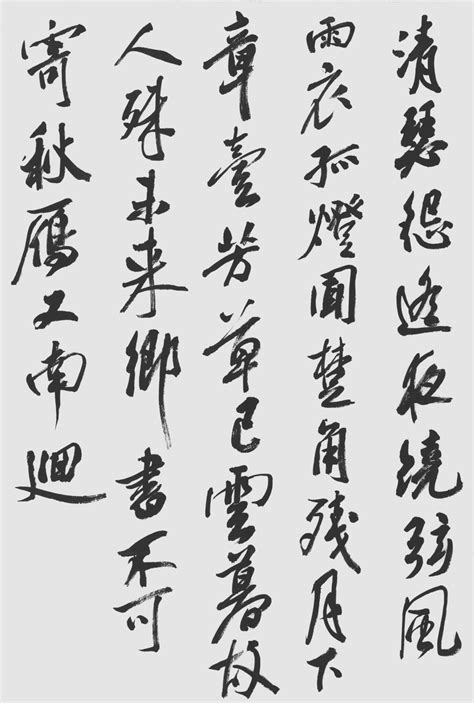 清瑟怨遙夜繞弦風
雨哀孤燈聞楚角残月下
章臺芳草已雲暮故
人殊未来鄉書不可
寄秋鴈又南迴